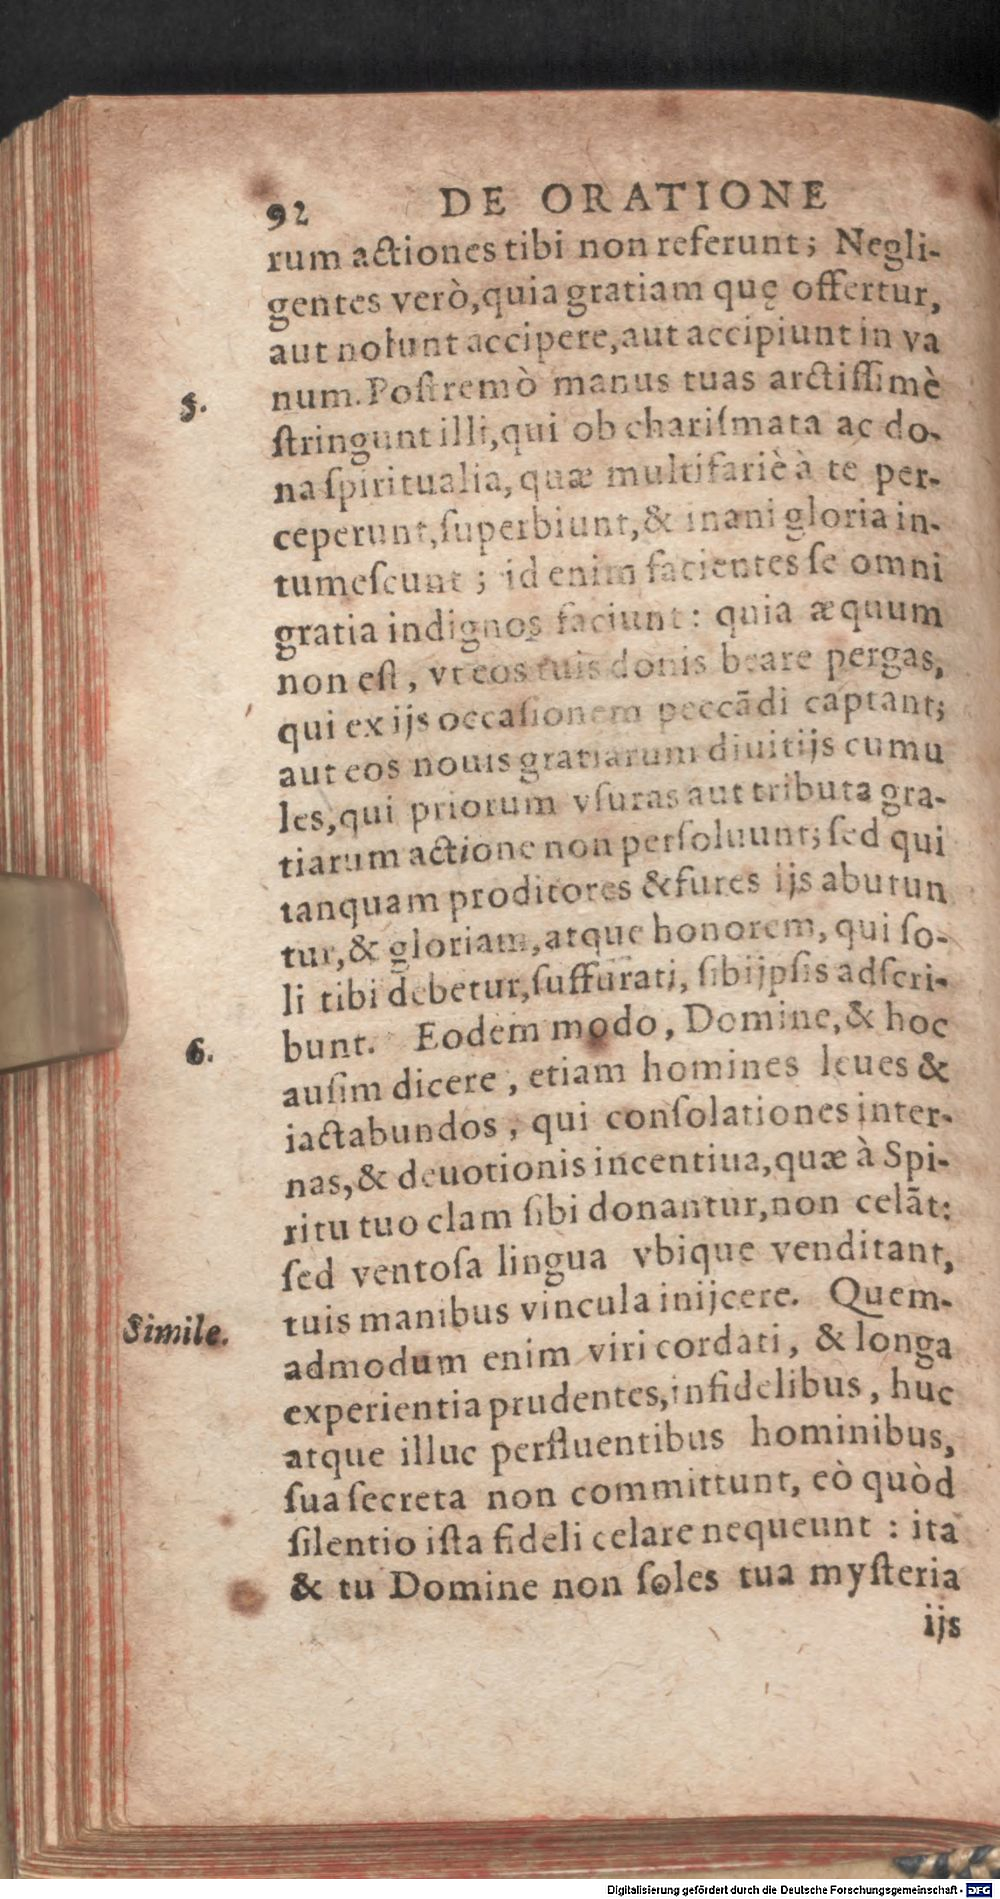 92 DE ORATIONE
rum actiones tibi non referunt; Negli-
gentes verò, quia gratiam quę offertur,
aut nolunt accipere, aut accipiunt in va
5. num. Poſtremò manus tuas arctiſſimè
ſtringunt illi, qui ob chariſmata ac do-
na ſpiritualia, quæ multifariè à te per-
ceperunt, ſuperbiunt, & inani gloria in-
tumeſcunt; id enim facientes ſe omni
gratia indignos faciunt: quia æquum
non eſt, vt eos tuis donis beare pergas,
qui ex ijs occaſionem peccãdi captant;
aut eos nouis gratiarum diuitijs cumu
les, qui priorum vſuras aut tributa gra-
tiarum actione non perſoluunt; ſed qui
tanquam proditores & fures ijs abutun
tur, & gloriam, atque honorem, qui ſo-
li tibi debetur, ſuffurati, ſibijpſis adſcri-
6. bunt. Eodem modo, Domine, & hoc
auſim dicere, etiam homines leues &
iactabundos, qui conſolationes inter-
nas, & deuotionis incentiua, quæ à Spi-
ritu tuo clam ſibi donantur, non celãt:
ſed ventoſa lingua vbique venditant,
tuis manibus vincula inijcere. Quem-
Simile. admodum enim viri cordati, & longa
experientia prudentes, infidelibus, huc
atque illuc perfluentibus hominibus,
ſua ſecreta non committunt, eò quòd
ſilentio iſta fideli celare nequeunt : ita
& tu Domine non ſoles tua myſteria
ijs
Digitalisierung gefördert durch die Deutsche Forschungsgemeinschaft - DFG